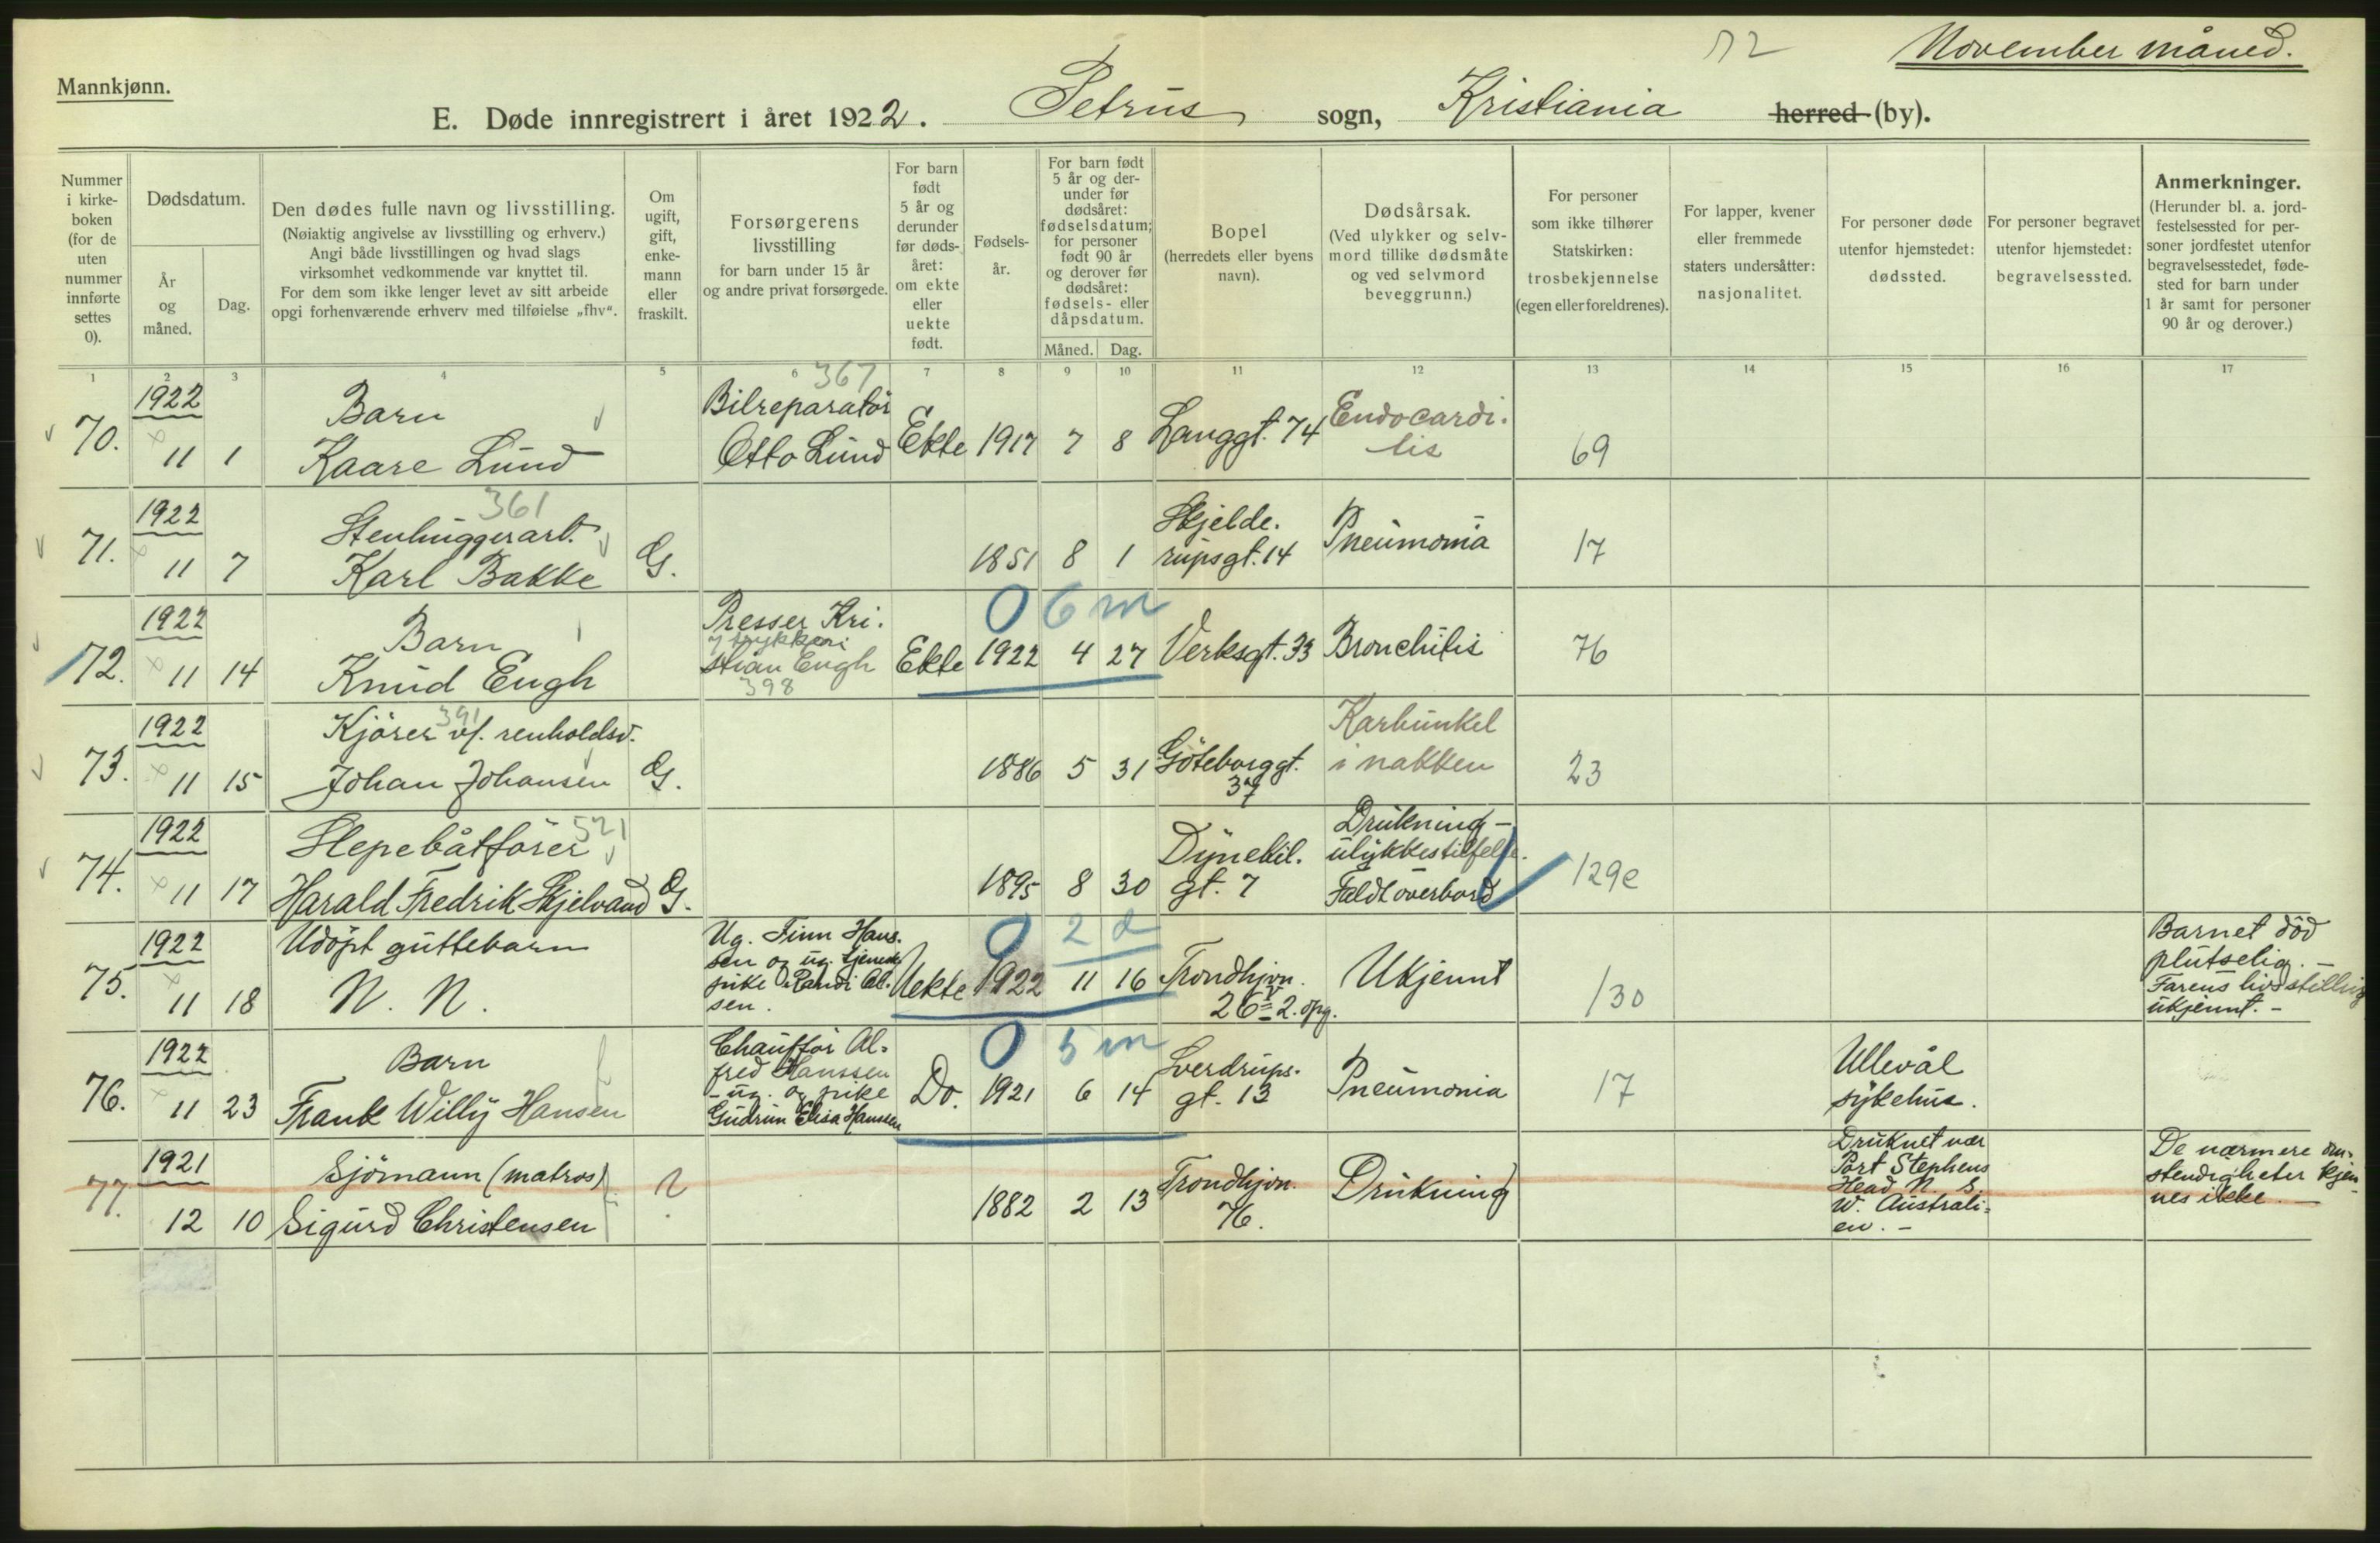 Mannkjønn.
November måned.
E. Døde innregistrert i året 1922. Petrus sogn, Kristiania herred (by).
Nummer i kirke-boken (for de uten nummer innførte settes 0).
Dødsdatum.
År og måned.
Dag.
Den dødes fulle navn og livsstilling.
(Nøiaktig angivelse av livsstilling og erhverv.)
Angi både livsstillingen og hvad slags
virksomhet vedkommende var knyttet til.
For dem som ikke lenger levet av sitt arbeide
opgi forhenværende erhverv med tilføielse „fhv“.
Om
ugift,
gift,
enke-
mann
eller
fraskilt.
Forsørgerens
livsstilling
for barn under 15 år
og andre privat forsørgede.
For barn
født
5 år og
derunder
før døds-
året:
om ekte
eller
uekte
født.
Fødsels-
år.
For barn født
5 år og der-
under før
dødsåret:
fødselsdatum;
for personer
født 90 år
og derover før
dødsåret:
fødsels- eller
dåpsdatum.
Måned. Dag.
Bopel
(herredets eller byens
navn).
Dødsårsak.
(Ved ulykker og selv-
mord tillike dødsmåte
og ved selvmord
beveggrunn.)
For personer
som ikke tilhører
Statskirken:
trosbekjennelse
(egen eller foreldrenes).
For lapper, kvener
eller fremmede
staters undersåtter:
nasjonalitet.
For personer døde
utenfor hjemstedet:
dødssted.
For personer begravet
utenfor hjemstedet:
begravelsessted.
Anmerkninger.
(Herunder bl. a. jord-
festelsessted for per-
soner jordfestet utenfor
begravelsesstedet, føde-
sted for barn under
1 år samt for personer
90 år og derover.)
1 2 3 4 5 6 7 8 9 10 11 12 13 14 15 16 17
70.
1922
11 1
Barn
Kaare Lund
367
Bilreparatör
Otto Lund
Ekte 1917 7 8
Langgt. 74
Endocardi-
tis
69
71.
1922
11 7
361
Stenhuggerarb.
Karl Bakke
G.
1851 8 1
Skjelde-
rupsgt. 14
Pneumonia
17
72.
1922
11 14
Barn
Knud Engh
Presser Kri-
stian Engh
398
Ekte 1922 4 27
0 6 m
Verksgt. 33
Bronchitis
76
73.
1922
11 15
391
Kjörer v/. renholdsv.
Johan Johansen
G.
1886 5 31
Göteborggt.
37
Karbunkel
i nakken
23
74.
1922
11 17
521
Slepebåtförer
Harald Fredrik Skjelvand
G.
1895 8 30
Dynekil-
gt. 7
Drukning -
ulykkestilfelle.
Faldt overbord
129e
75.
1922
11 18
Udöpt guttebarn
N. N.
Ug. Finn Hans-
sen og ug. tjeneste-
pike Randi Ol-
sen.
Uekte 1922 11 16
0 2 d
Trondhjvn.
26 2. opg.
Ukjennt
130
Barnet död
plutselig. -
Farens livsstilling
ukjennt. -
76.
1922
11 23
Barn
Frank Willy Hansen
Chaufför Al-
fred Hanssen
- ug. og pike
Gudrun Elisa Hanssen
Do. 1921 6 14
0 5 m
Sverdrups-
gt. 13
Pneumonia
17
Ullevål
sykehus.
77.
1921
12 10
Sjömann (matros)
Sigurd Christensen
?
1882 2 13
Trondhjvn.
76.
Drukning
Druknet vær
Port Stephens
Head N. S.
W. Australi-
en. -
De nærmere om-
stendigheter kjen-
nes ikke. -